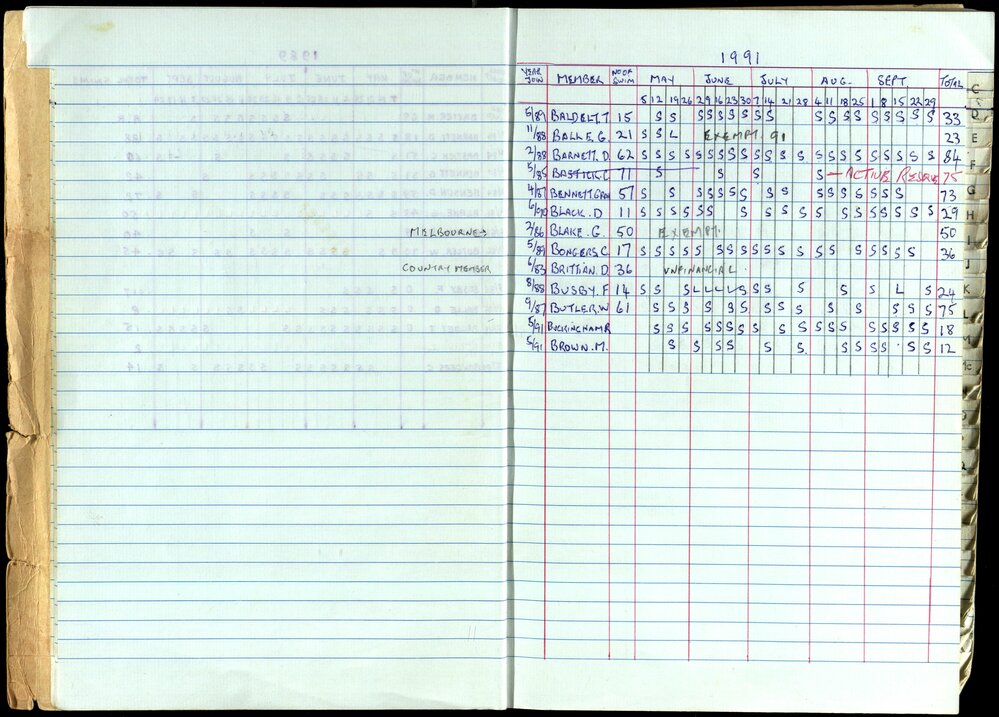 1991
YEAR JOIN MEMBER NO OF SWIM MAY JUNE JULY AUG. SEPT. TOTAL
5 12 19 26 2 9 16 23 30 7 14 21 28 4 11 18 25 1 8 15 22 29
5/89 BALDELT.T 15 S S S S S S S S S S S S S S S S S S 33
11/88 BALLE.G. 21 S S L EXEMPT. 91 23
2/88 BARNETT.D. 62 S S S S S S S S S S S S S S S S S S S S S S 84
5/85 BASTICK.C 71 S S S S — ACTIVE RESERVE 75
4/87 BENNETT.GRAH 57 S S S S S S S S S S S S S S S S 73
BLACK.D 11 S S S S S S S S S S S S S S S S S S 29
MELBOURNE→ 2/86 BLAKE.G. 50 EXEMPT. 50
5/89 BONGERS.C. 17 S S S S S S S S S S S S S S S S S S S 36
COUNTRY MEMBER 6/83 BRITTIAN.D. 36 UNFINANCIAL. 
8/88 BUSBY.F 14 S S S L L L L S S S S S S L S 24
9/87 BUTLER.W 61 S S S S S S S S S S S S S S 75
5/91 BUCKINGHAM.R S S S S S S S S S S S S S S S S S S 18
5/91 BROWN.M. S S S S S S S S S S S S 12
C
D
E
F
G
H
I
J
K
L
M
Mc